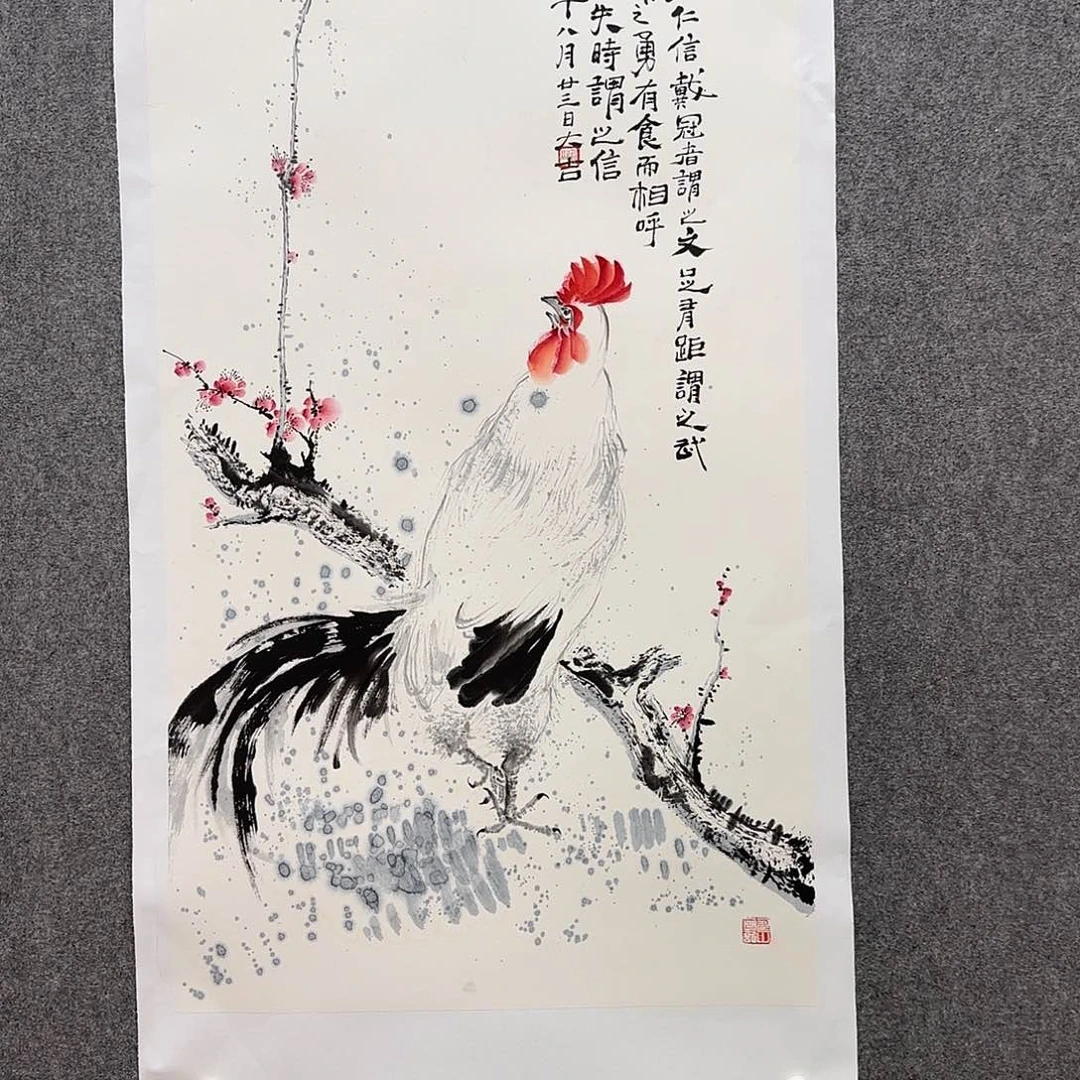 仁信戴冠者謂之文足有距謂之武
之勇有食而相呼
失時謂之信
八月廿三日大吉